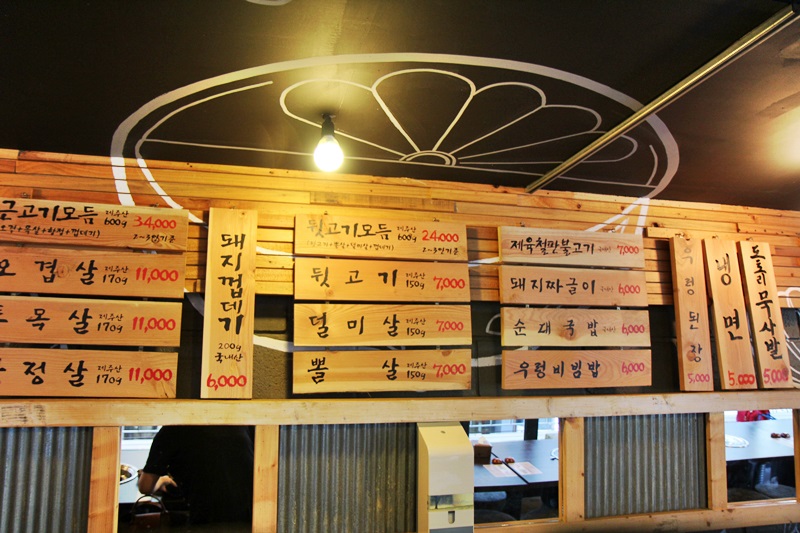 근고기모듬 제주산 600g 34,000
2~3인기준
오겹살 제주산 170g 11,000
목살 제주산 170g 11,000
정살 제주산 170g 11,000
돼지껍데기 200g 국내산 6,000
뒷고기모듬 제주산 600g 24,000
2~3인기준
뒷고기 제주산 150g 7,000
덜미살 제주산 150g 7,000
뽈살 제주산 150g 7,000
제육철판불고기 국내산 7,000
돼지짜글이 국내산 6,000
순대국밥 국내산 6,000
우렁비빔밥 6,000
우렁된장 5,000
냉면 5,000
도토리묵사발 5,000